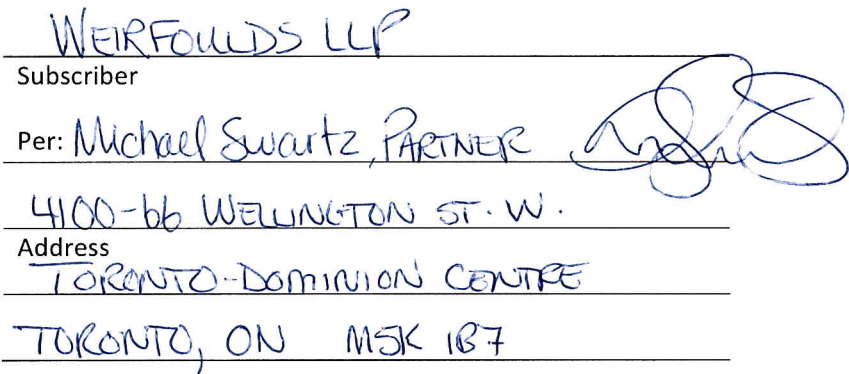 WEIRFOULDS LLP
Subscriber
Per: Michael Swartz, PARTNER
4100-66 WELLINGTON ST. W.
Address
TORONTO-DOMINION CENTRE
TORONTO, ON M5K 1B7